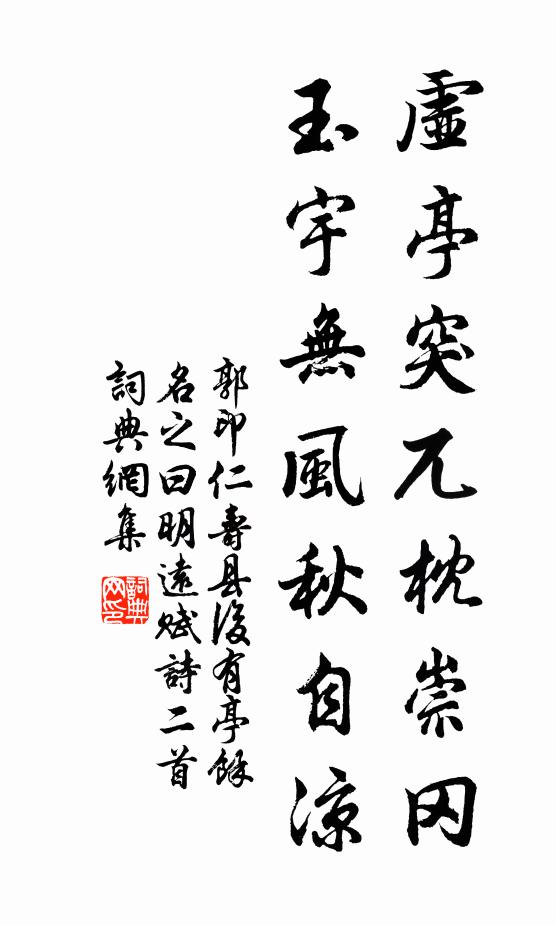 虛亭突兀枕崇冈
玉宇無風秋自凉
郭印仁壽县後有亭餘
名之曰明遠赋詩二首
詞典網集
詞典
网印